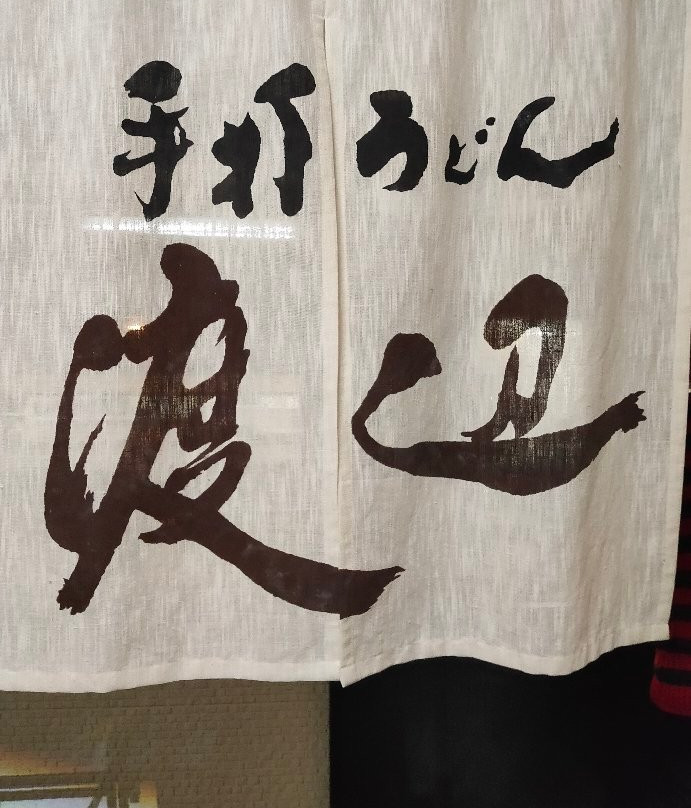 手打うどん
渡辺